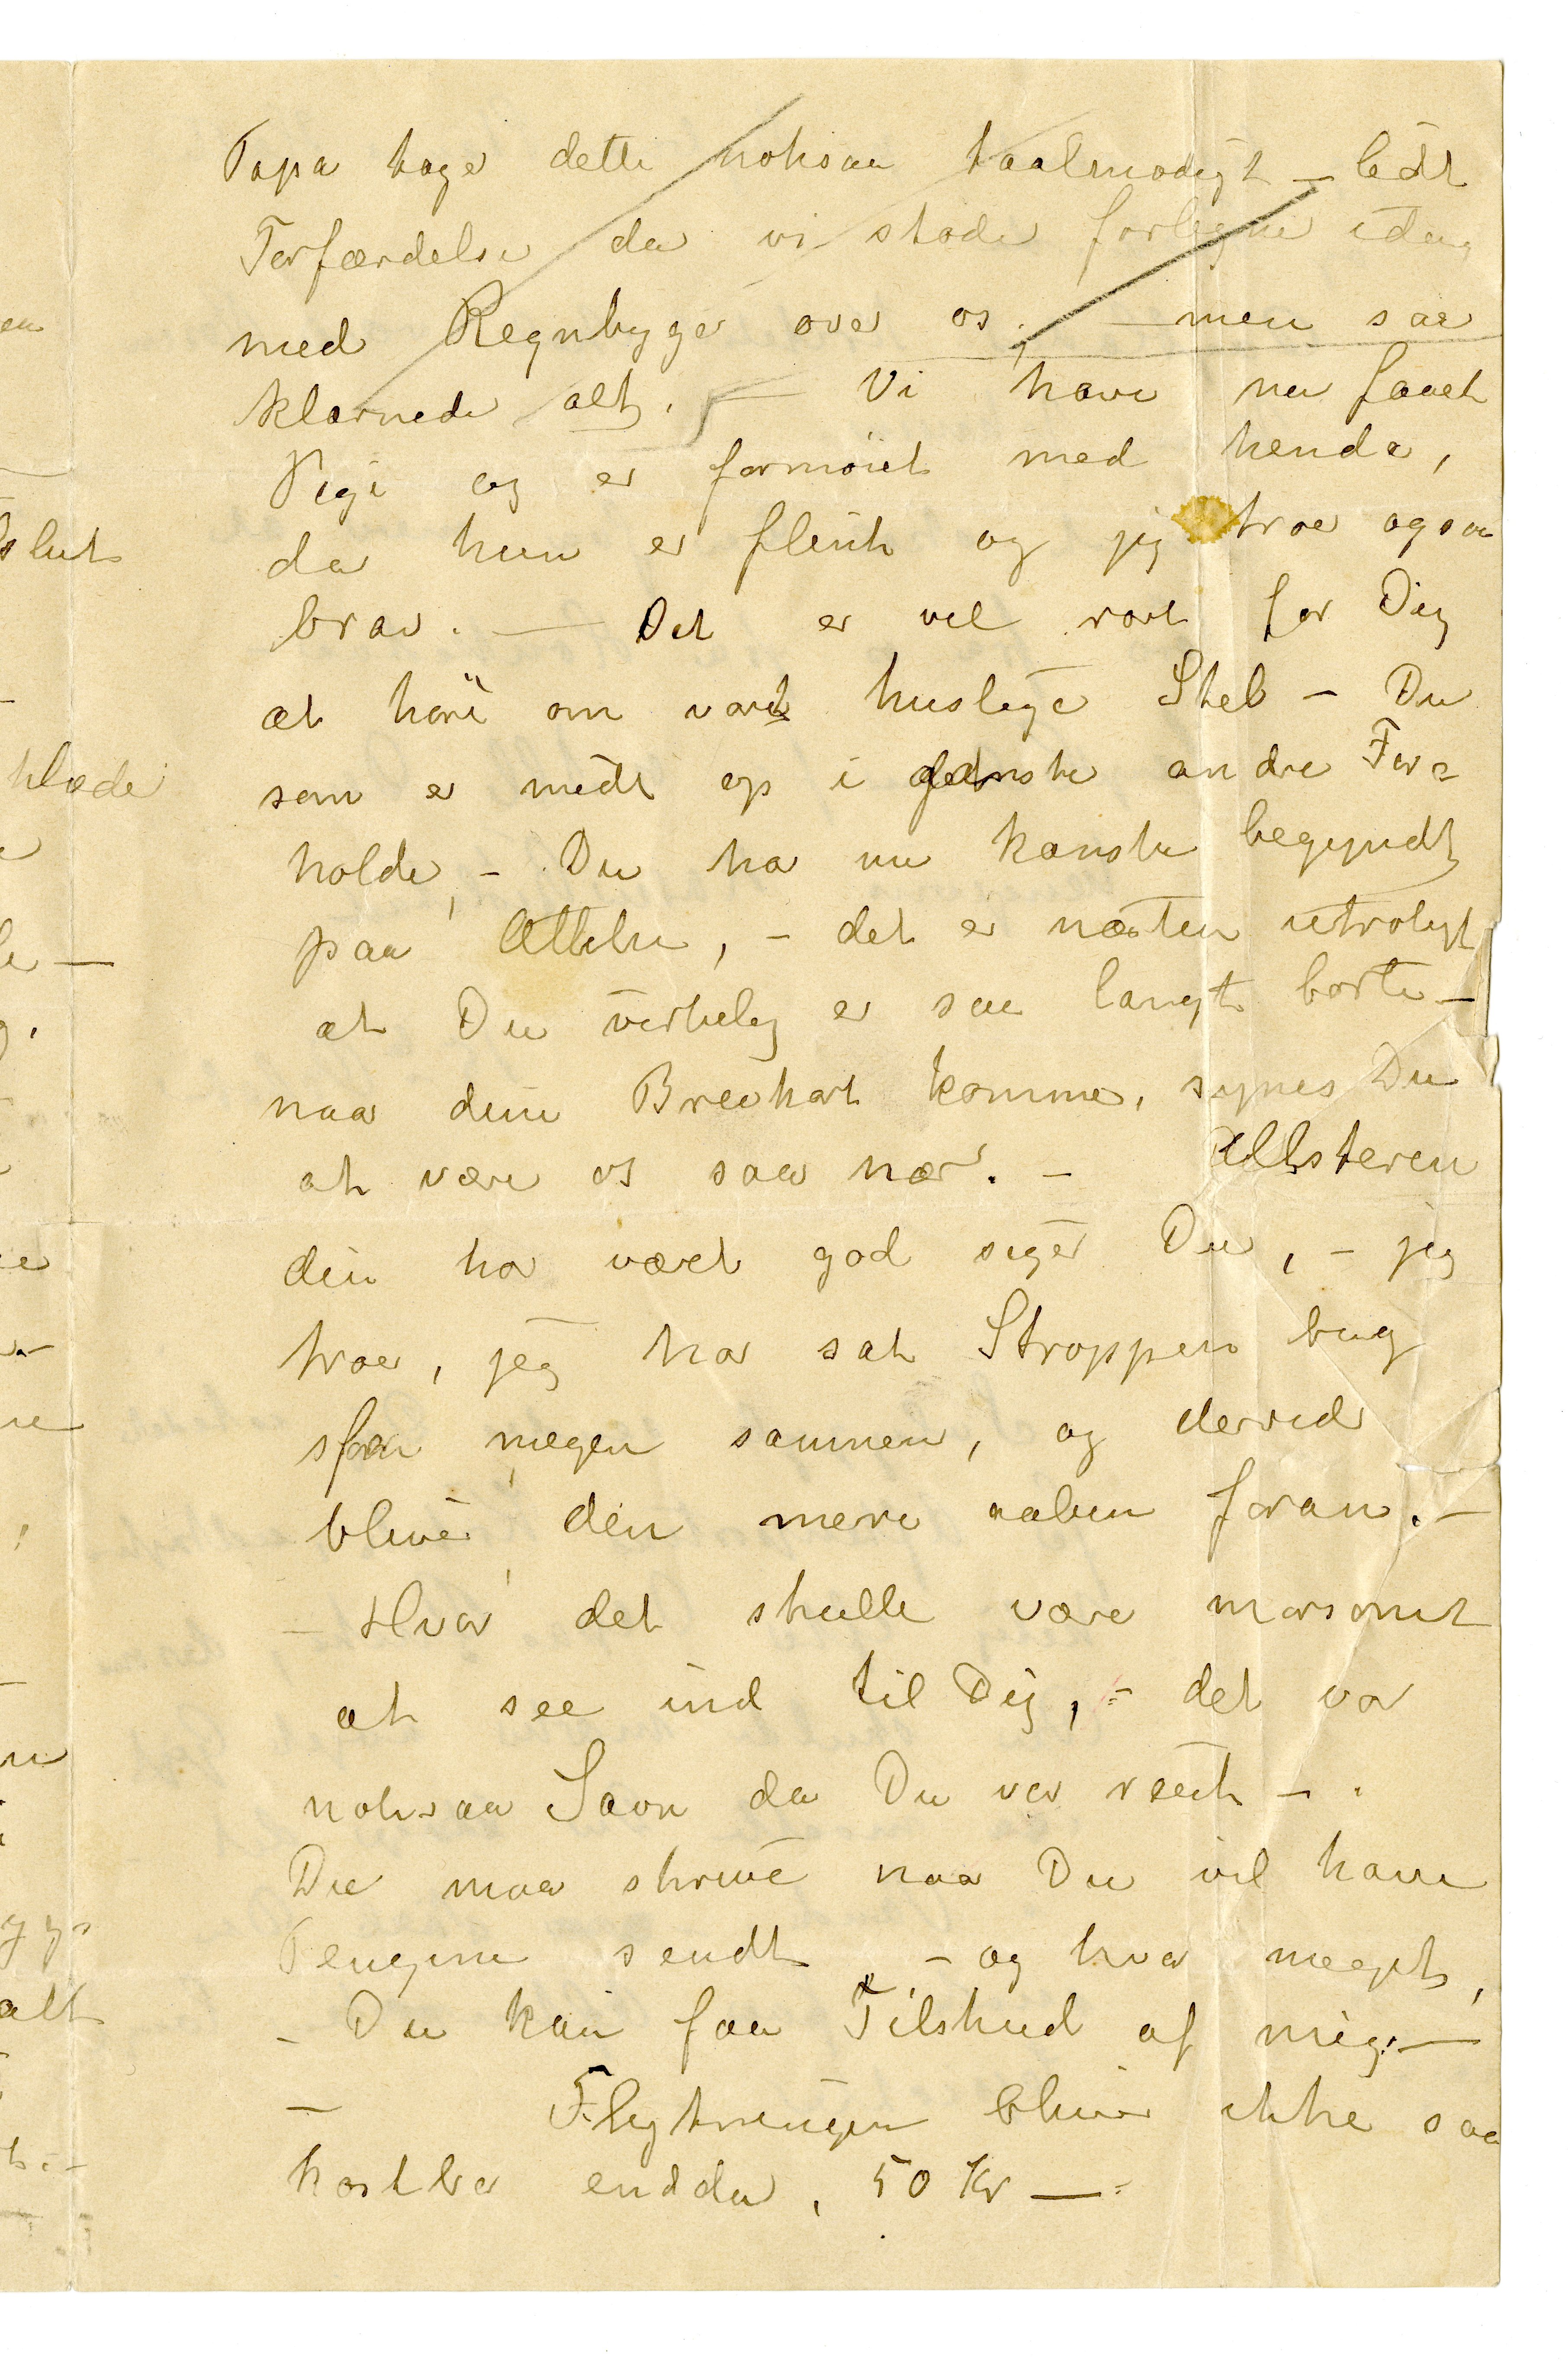 Papa tager dette noksaa taalmodigt – lidt
Forfærdelse da vi stode færdige idag
med Regnbyger over os. – men saa
klarnede alt. – Vi have nu faaet
Pige og er fornøiet med hende,
da hun er flink og jeg troer ogsaa
brav. – Det er vel rart for Dig
at høre om vort huslige Stel – Du
som er midt op i ganske andre For=
holde, – Du har nu kanske begyndt
paa Atelier, – det er næsten utroligt
at Du virkelig er saa langt borte –
naar dine Brevkort kommer, synes Du
at være os saa nær. – Ullsteren
din har været god siger Du, – jeg
troer, jeg har sat Stroppen bag
for megen sammen, og derved
bliver den mere aaben foran. –
– Hvor det skulle være morsomt
at see ind til Dig, – det var
noksaa Savn da Du var reist –.
Du maa skrive naar Du vil have
Pengene sendt – og hvor meget,
– Du kan faa Tilskud af mig. –
– Flytningen bliver ikke saa
kostbar endda, 50 Kr –
slut
klæde
alt